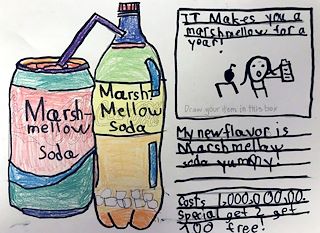 Marsh-
mellow
Soda
Marsh-
Mellow
Soda
IT Makes you a
marshmellow for a
year!
Draw your item in this box
My new flavor is
Marshmellow
soda yummy!
Costs 1,000,000,00.
Special get 2 get
100 free!